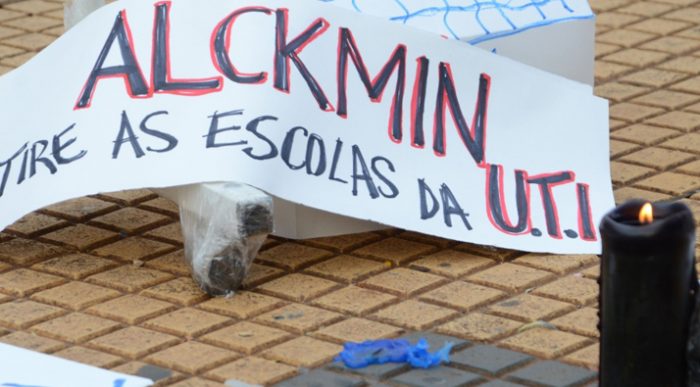 ALCKMIN
TIRE AS ESCOLAS DA U.T.I